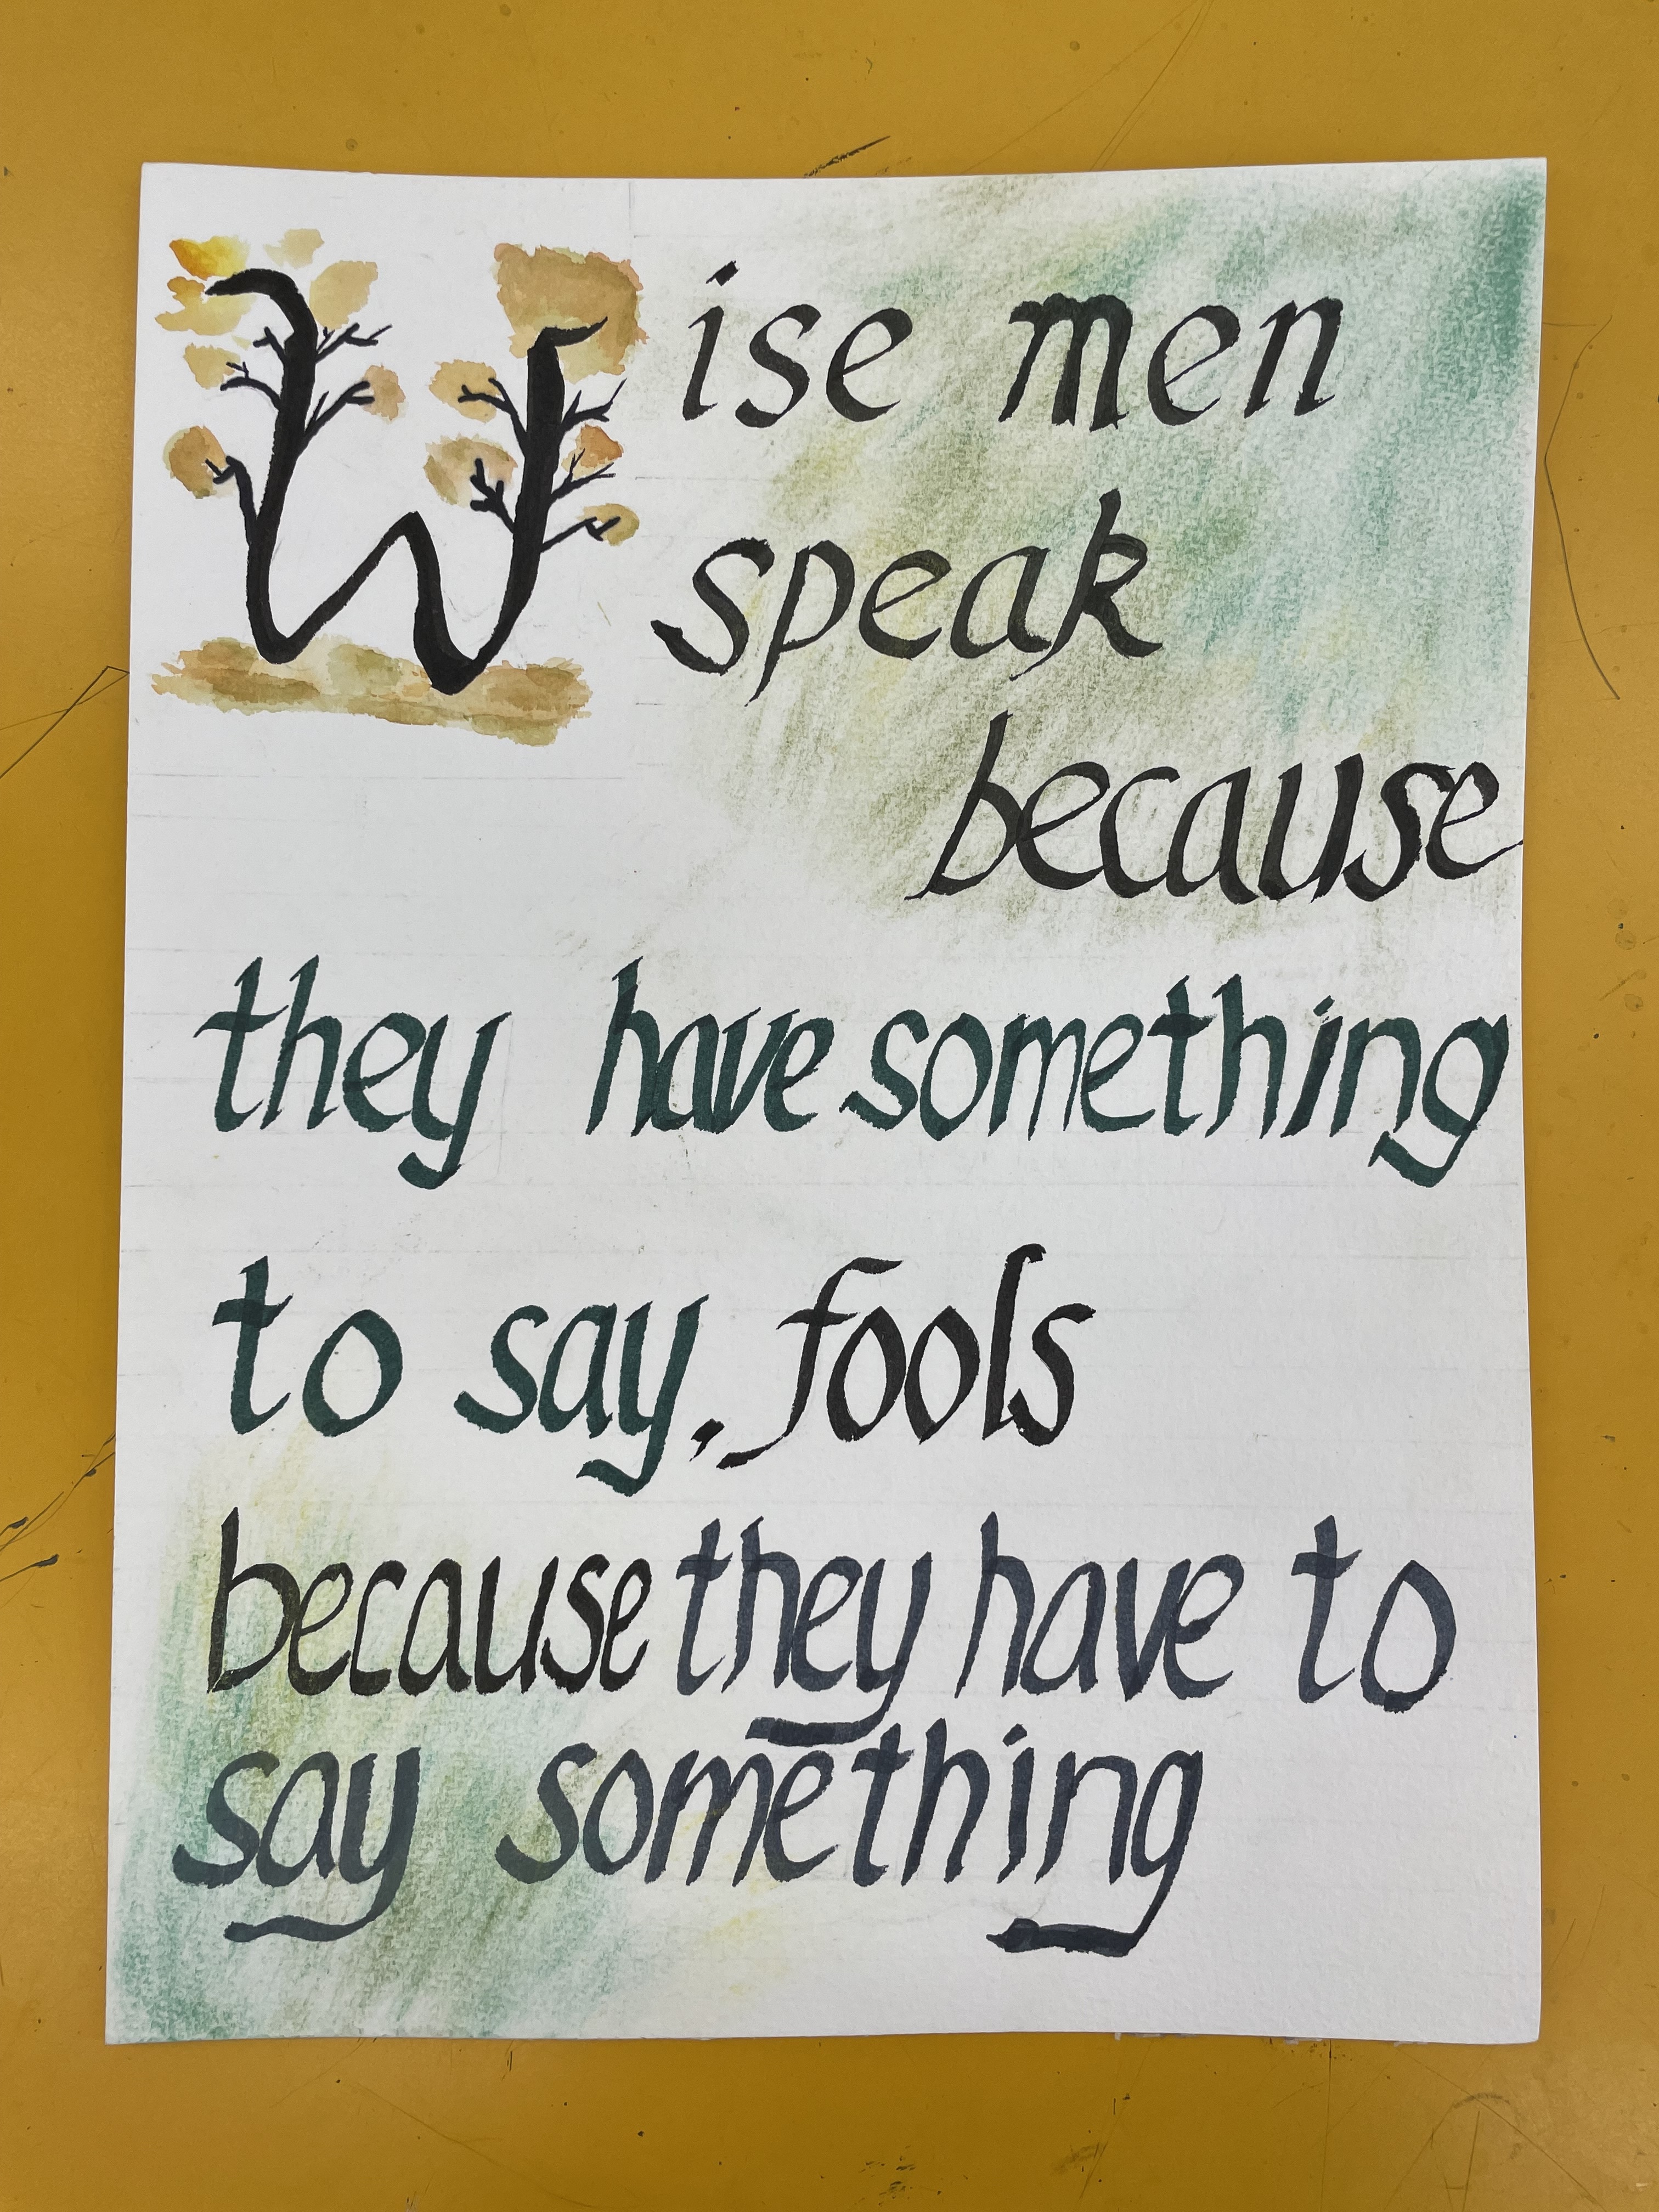 Wise men
speak
because
they have something
to say, fools
because they have to
say something